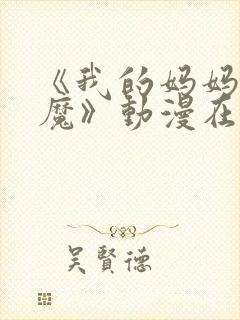 《我的妈妈
魔》動漫在
吴賢德